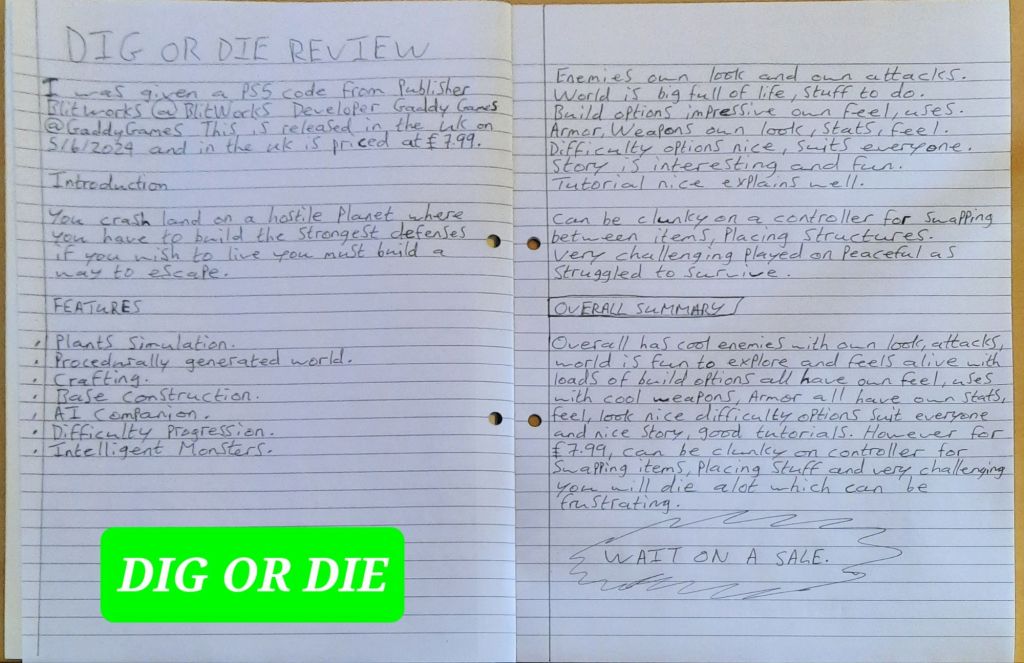 DIG OR DIE REVIEW
I was given a PS5 code from Publisher
Blitworks @BlitWorks Developer Gaddy Games
@GaddyGames This is released in the uk on
5/6/2024 and in the uk is priced at £7.99.
Introduction
You crash land on a hostile Planet where
you have to build the strongest defenses
if you wish to live you must build a
way to escape.
FEATURES
• Plants Simulation.
• Procedurally generated world.
• Crafting.
• Base Construction.
• AI Companion.
• Difficulty Progression.
• Intelligent Monsters.
DIG OR DIE
Enemies own look and own attacks.
World is big full of life, stuff to do.
Build options impressive own feel, uses.
Armor, Weapons own look, Stats, feel.
Difficulty options nice, suits everyone.
Story is interesting and fun.
Tutorial nice explains well.
Can be clunky on a controller for swapping
between items, Placing Structures.
Very challenging Played on Peaceful as
struggled to survive.
OVERALL SUMMARY
Overall has cool enemies with own look, attacks,
world is fun to explore and feels alive with
loads of build options all have own feel, uses
with cool weapons, Armor all have own stats,
feel, look nice difficulty options suit everyone
and nice story, good tutorials. However for
£7.99, can be clunky on controller for
swapping items, Placing stuff and very challenging
you will die alot which can be
frustrating.
WAIT ON A SALE.